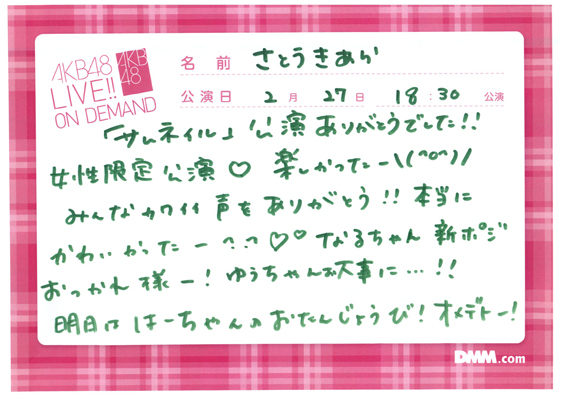 AKB48
LIVE!!
ON DEMAND
AKB
48
名前 さとうきあら
公演日 2月 27日 18:30 公演
「サムネイル」公演ありがとうでした!!
女性限定公演♡ 楽しかったー\(^o^)/
みんなカワイイ声をありがとう!! 本当に
かわいかったー ^_^ ♡♡ なるちゃん 新ポジ
おつかれ様ー! ゆうちゃんお大事に…!!
明日ははーちゃんのおたんじょうび! オメデトー!
DMM.com